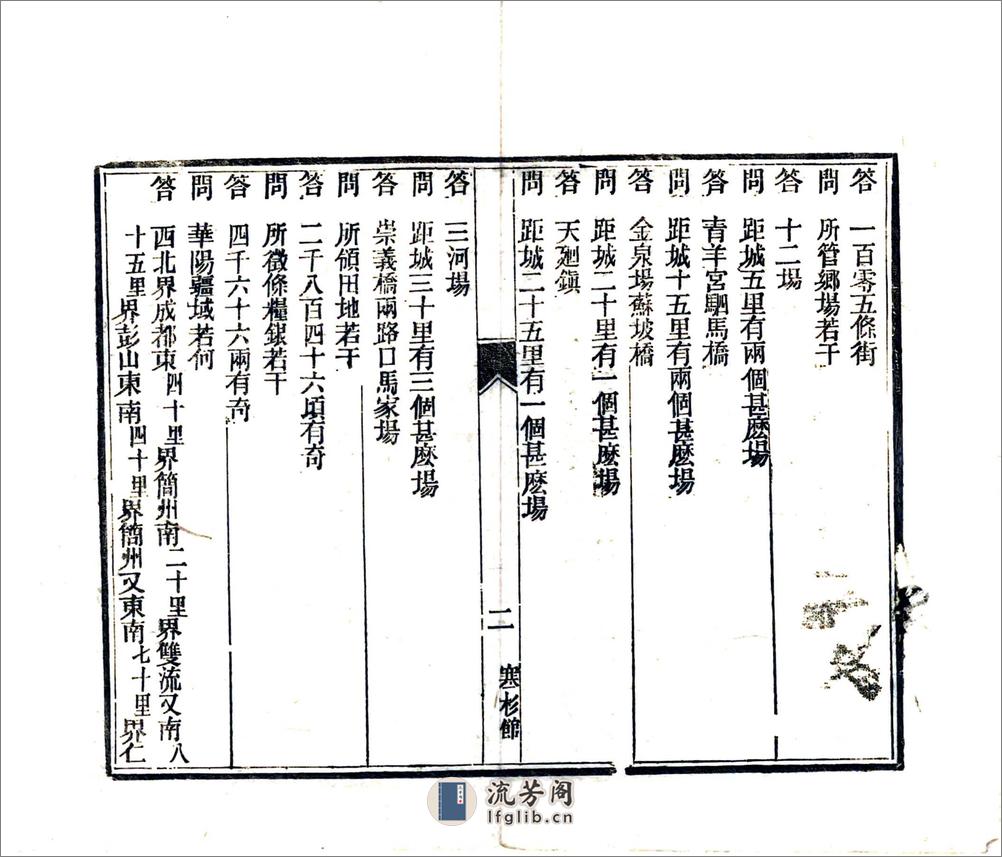 答 一百零五條街
問 所管鄉場若干
答 十二場
問 距城五里有兩個甚麽場
答 青羊宮駟馬橋
問 距城十五里有兩個甚麽場
答 金泉場蘇坡橋
問 距城二十里有一個甚麽場
答 天廻鎮
問 距城二十五里有一個甚麽場
二 寒杉館
答 三河場
問 距城三十里有三個甚麽場
答 崇義橋兩路口馬家場
問 所領田地若干
答 二千八百四十六頃有奇
問 所徵條糧銀若干
答 四千六十六兩有奇
問 華陽疆域若何
答 西北界成都東四十里界簡州南二十里界雙流又南八
十五里界彭山東南四十里界簡州又東南七十里界仁
流芳阁
lfglib.cn